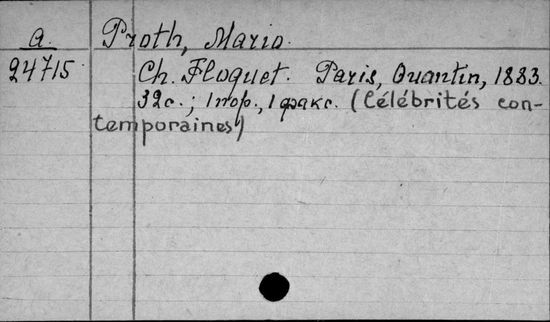 a. Proth, Mario.
24715 Ch. Floquet. Paris, Quantin, 1883.
32с.; 1 пор., 1 факс. (Célébrités con-
temporaines)